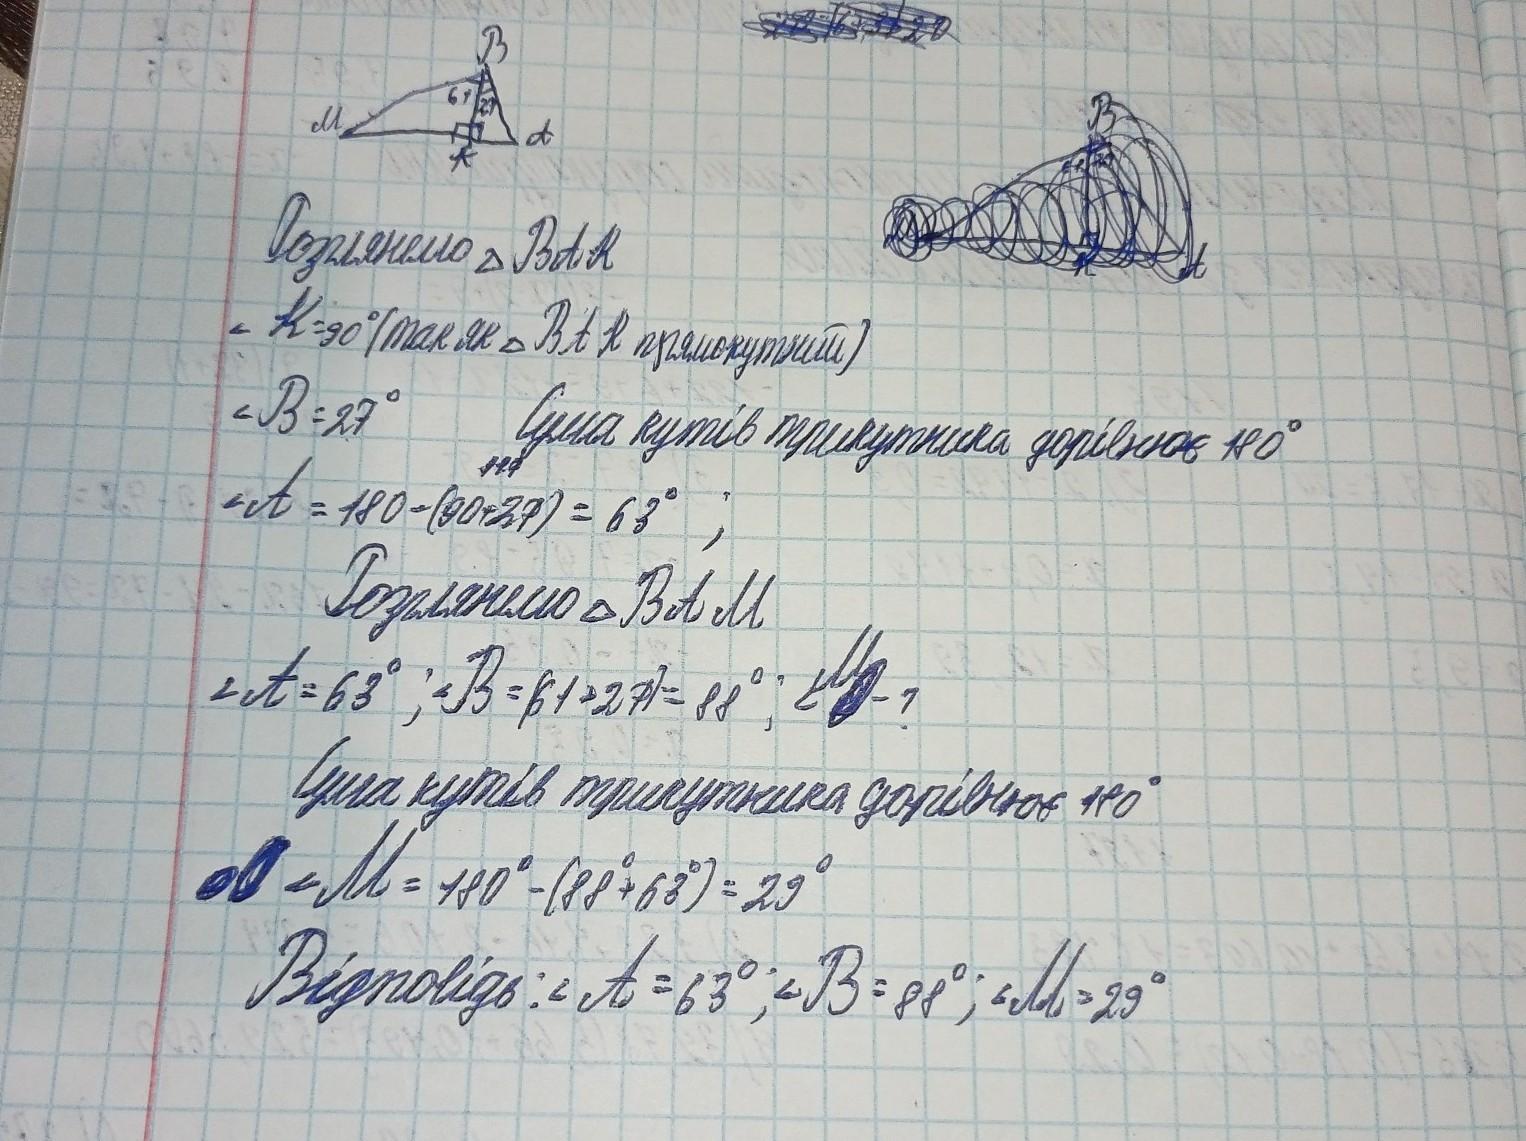 B
61
27
M
A
K
B
27
K
A
Розглянемо △ BAK
∠ K=90°(так як △ BAK прямокутний)
∠B=27°
Сума кутів трикутника дорівнює 180°
117
∠A = 180-(90+27) = 63° ;
Розглянемо △ BAM
∠A = 63° ; ∠B = (61+27) = 88° ; ∠M - ?
Сума кутів трикутника дорівнює 180°
∠M = 180° - (88°+63°) = 29°
Відповідь: ∠A = 63°; ∠B = 88°; ∠M = 29°